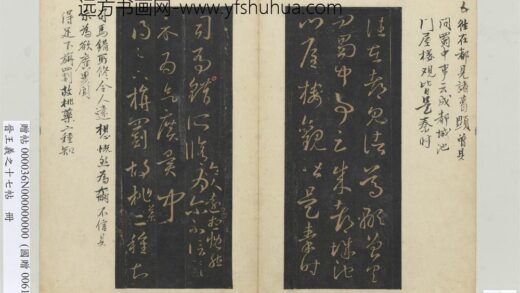 远方书画网- www.yfshuhua.com
往在都見諸葛顒曾具
問蜀中事云成都城池
門屋樓觀皆是秦時
往在都見諸葛顒曾具
問蜀中事云成都城池
門屋樓觀皆是秦時
司馬錯所修令人遠想慨然
為爾不信具
示為欲廣異聞
得足下旃罽胡桃藥二種知
司馬錯所修令人遠想慨然為爾不信具
示為欲廣異聞
得足下旃罽胡桃藥二種知
贈帖 000036N000000000 (國贈 0061
晉王羲之十七帖 冊